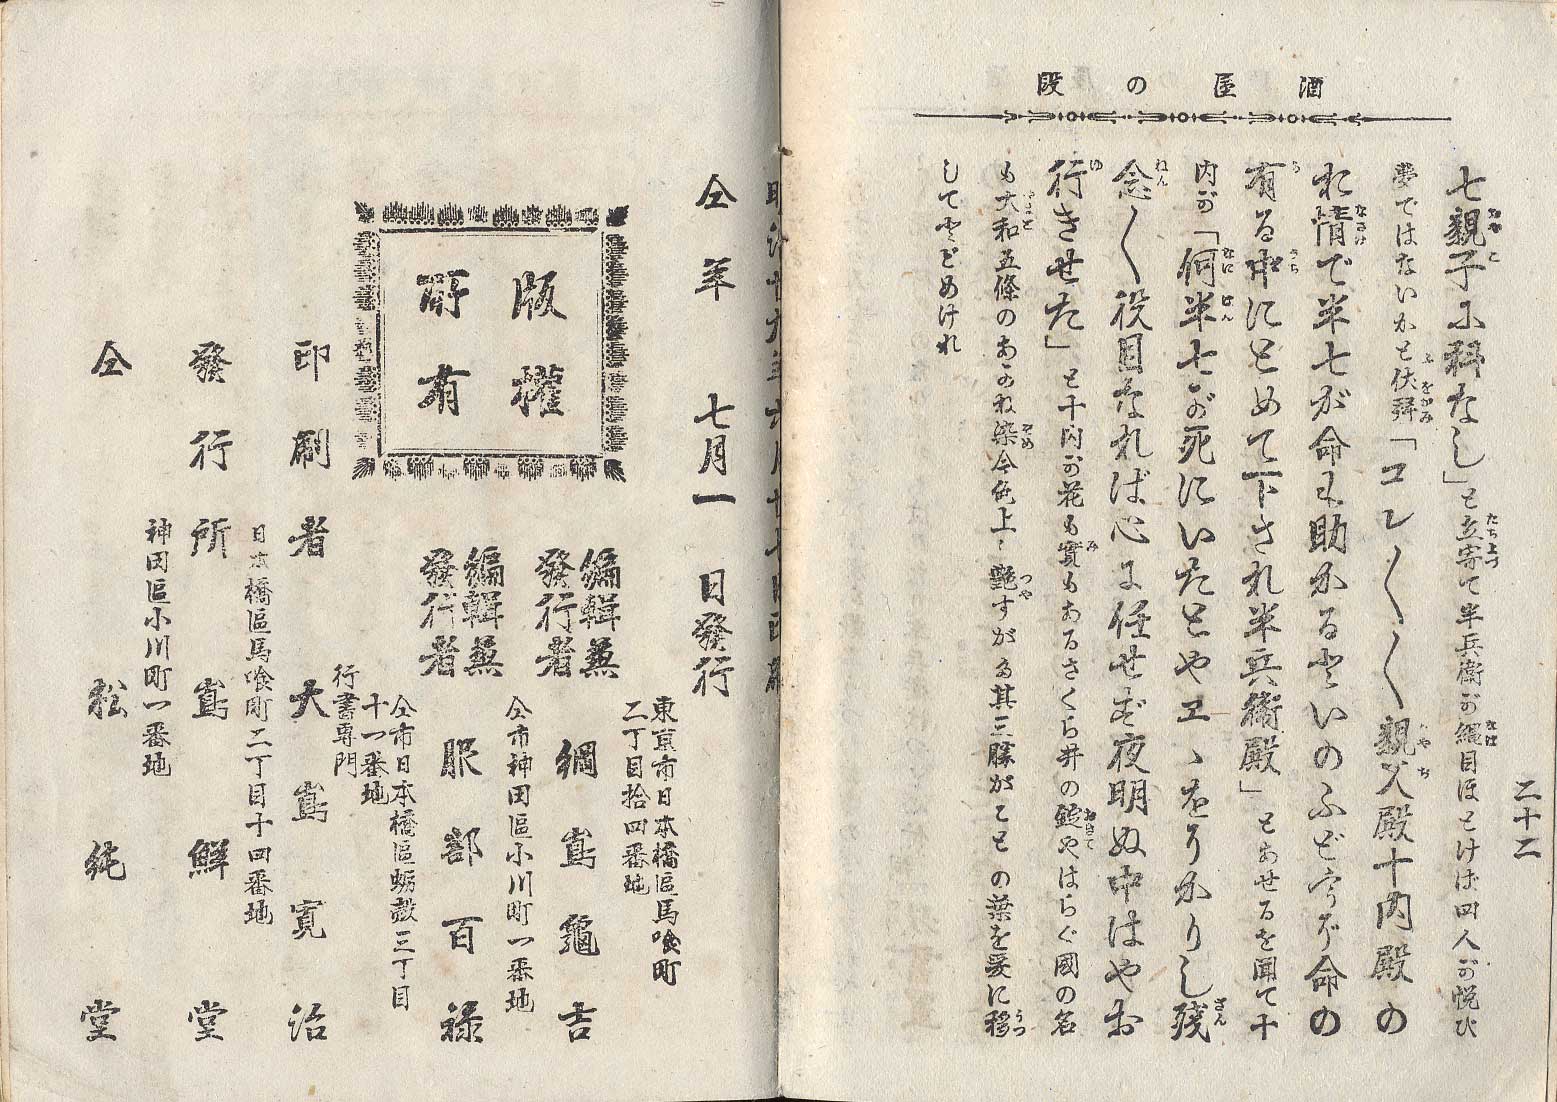 酒屋の段
二十二
七親子に科なし」と立寄て半兵衛が縄目ほとけば四人が悦び
夢ではないかと伏拝「コレ〳〵〳〵親父殿十内殿の
お情で半七が命も助かる
有る中にとめて下され半兵衛殿」とあせるを聞て十
内が「何半七が死にいたとやエヽをりかりし残
念〳〵役目なれば心に任せず夜明ぬ中はやお
行きせた」と十内が花も実もあるさくら井の錠やはらぐ國の名
も大和五條のあかね染今色上ヽ艶すがた其三勝がことの葉を爰に移
してとどめけれ
仝年七月一日發行
版權
所有
東京市日本橋區馬喰町
二丁目拾四番地
編輯兼
發行者
綱島龜吉
仝市神田區小川町一番地
編輯兼
發行者
服部百祿
仝市日本橋區蛎殻三丁目
十一番地
行書専門
印刷者 大島寛治
日本橋區馬喰町二丁目十四番地
發行所 島鮮堂
神田區小川町一番地
仝 松純堂